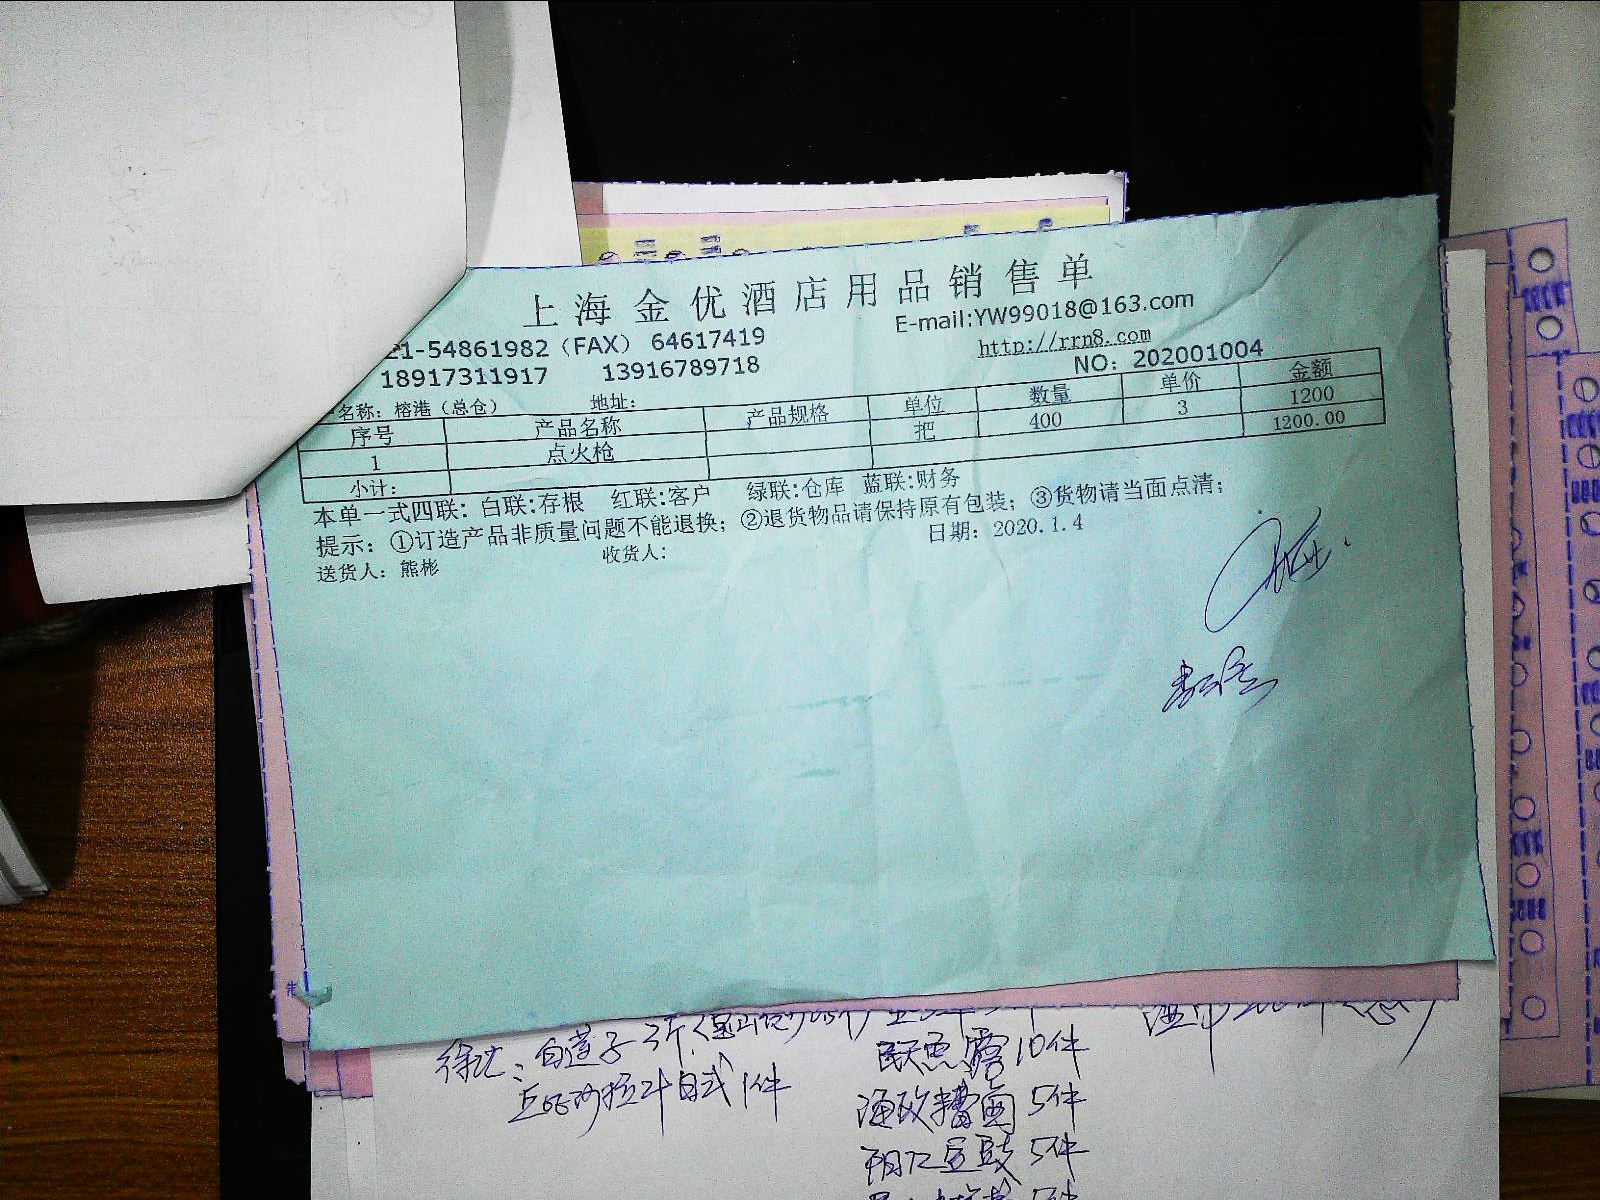 上海金优酒店用品销售单
21-54861982（FAX） 64617419
E-mail:YW99018@163.com
18917311917 13916789718
http://rrn8.com
NO：202001004
名称：榕港（总仓） 地址：
序号 产品名称 产品规格 单位 数量 单价 金额
1 点火枪 把 400 3 1200
小计： 1200.00
本单一式四联：白联:存根 红联:客户 绿联:仓库 蓝联:财务
提示：①订造产品非质量问题不能退换；②退货物品请保持原有包装；③货物请当面点清；
送货人：熊彬 收货人： 日期：2020.1.4
白莲子
1件
露10件
糟卤5件
阳江豆豉5件